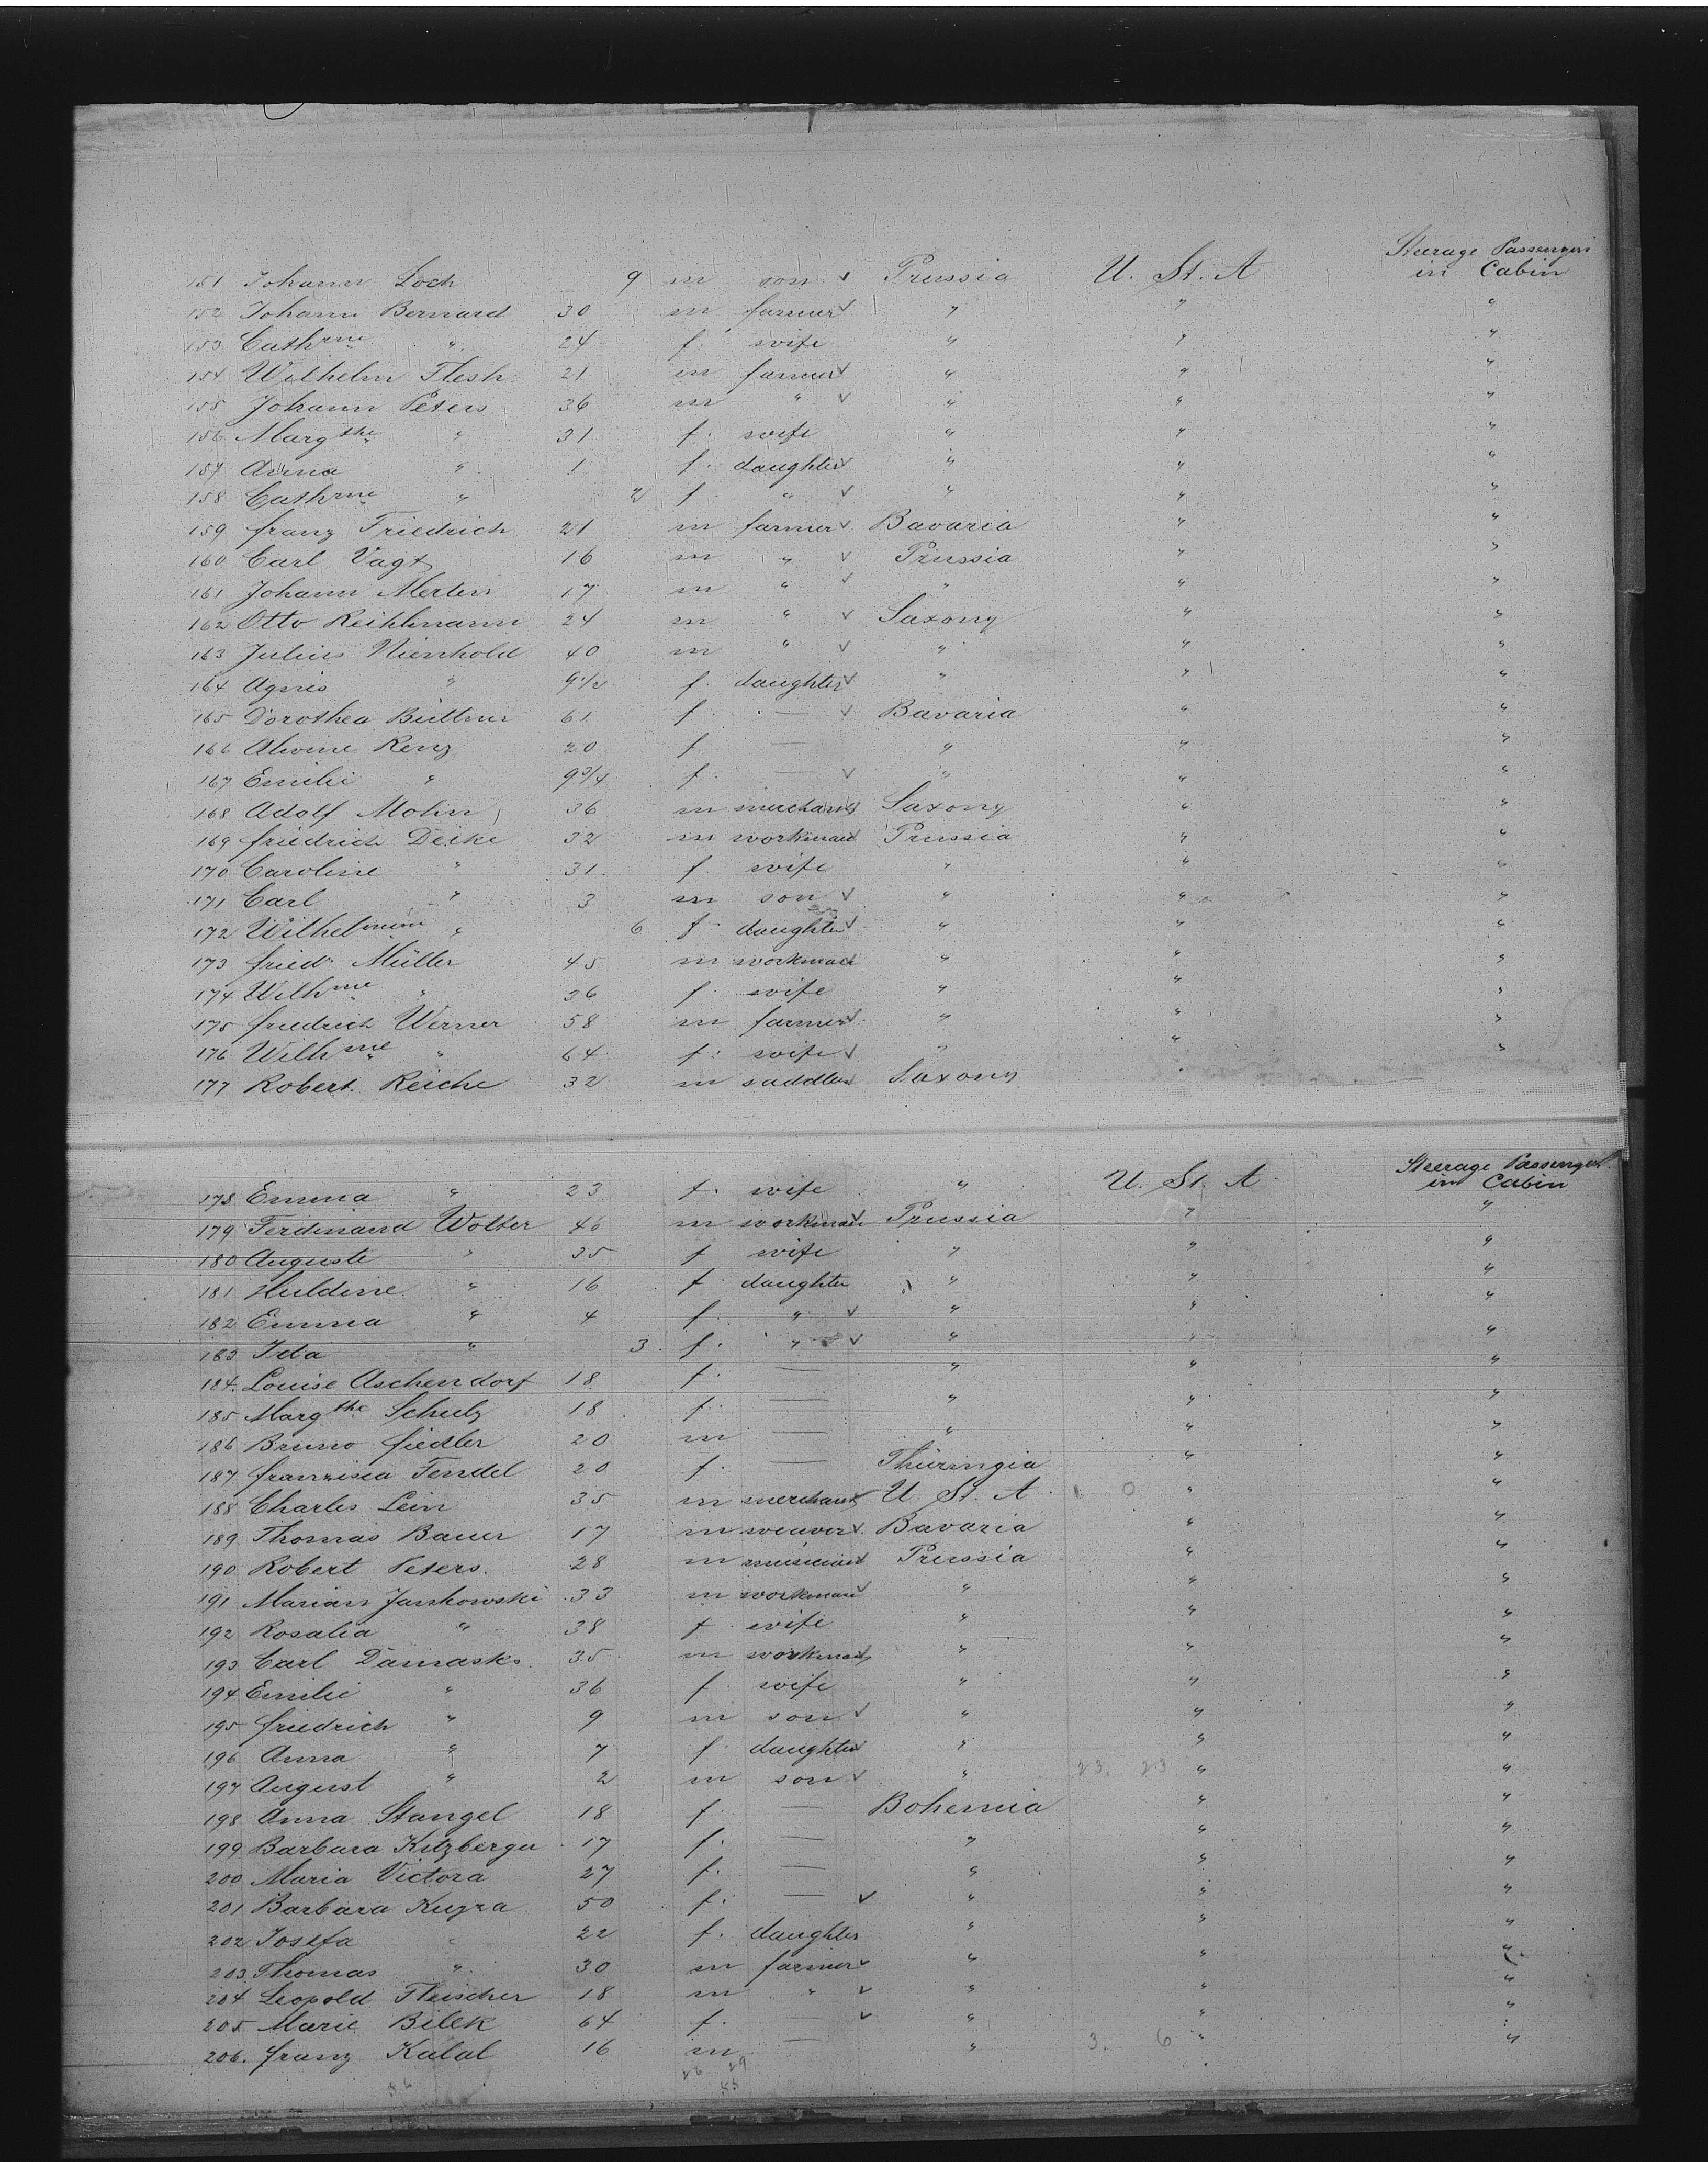 Steerage Passengers
151 Johann Loch 9 m son ✓ Prussia U. St. A in Cabin
152 Johann Bernard 30 m farmer ✓ " " "
153 Cathrine " 24 f. wife " " "
154 Wilhelm Flesh 21 m farmer ✓ " " "
155 Johann Peters 36 m " ✓ " " "
156 Margthe " 31 f. wife " " "
157 Anna " 1 f. daughter ✓ " " "
158 Cathrine " 2 f. " ✓ " " "
159 franz Friedrich 21 m farmer ✓ Bavaria " "
160 Carl Vagt 16 m " ✓ Prussia " "
161 Johann Merten 17 m " ✓ " " "
162 Otto Reihlmann 24 m " ✓ Saxony " "
163 Julius Nienhold 40 m " ✓ " " "
164 Agnes " 9 1/2 f. daughter ✓ " " "
165 Dorothea Büttner 61 f. — ✓ Bavaria " "
166 Alwine Renz 20 f — " " "
167 Emilie " 9 3/4 f. — ✓ " " "
168 Adolf Mohn 36 m merchant ✓ Saxony " "
169 friedrich Deike 32 m workman ✓ Prussia " "
170 Caroline " 31. f wife " " "
171 Carl " 3 m son ✓ " " "
172 Wilhelmine " 6 f daughter ✓ " " "
173 friedr Müller 45 m workman ✓ " " "
174 Wilhme " 36 f. wife " " "
175 friedrich Werner 58 m farmer ✓ " " "
176 Wilhme " 64 f. wife ✓ " " "
177 Robert Reiche 32 m saddler ✓ Saxony "
Steerage Passenger
178 Emma " 23 f. wife " U. St. A in Cabin
179 Ferdinand Wolter 46 m workman ✓ Prussia " "
180 Auguste " 35 f wife " " "
181 Huldine " 16 f daughter " " "
182 Emma " 4 f. " ✓ " " "
183 Ida " 3. f. " ✓ " " "
184. Louise Aschendorf 18 f. — " " "
185 Margthe Schulz 18 f. — " " "
186 Bruno fiedler 20 m — " " "
187 franziska Tendel 20 f. — Thüringia " "
188 Charles Lein 35 m merchant ✓ U. St. A. 0 " "
189 Thomas Bauer 17 m weaver ✓ Bavaria " "
190 Robert Peters. 28 m musician ✓ Prussia " "
191 Marian Jankowski 33 m workman ✓ " " "
192 Rosalia " 38 f wife " " "
193 Carl Damasks 35 m workman ✓ " " "
194 Emilie " 36 f wife " " "
195 friedrich " 9 m son ✓ " " "
196 Anna " 7 f daughter ✓ " " "
197 August " 2 m son ✓ " 23. 23 " "
198 Anna Stangel 18 f. — Bohemia " "
199 Barbara Kitzberger 17 f. — " " "
200 Maria Victora 27 f. — " " "
201 Barbara Kugra 50 f. — ✓ " " "
202 Josefa " 22 f. daughter " " "
203 Thomas " 30 m farmer ✓ " " "
204 Leopold Fleischer 18 m " ✓ " " "
205 Marie Bilek 64 f. — ✓ " " "
206. franz Kalal 16 m — " 3. 6 " "
26 29